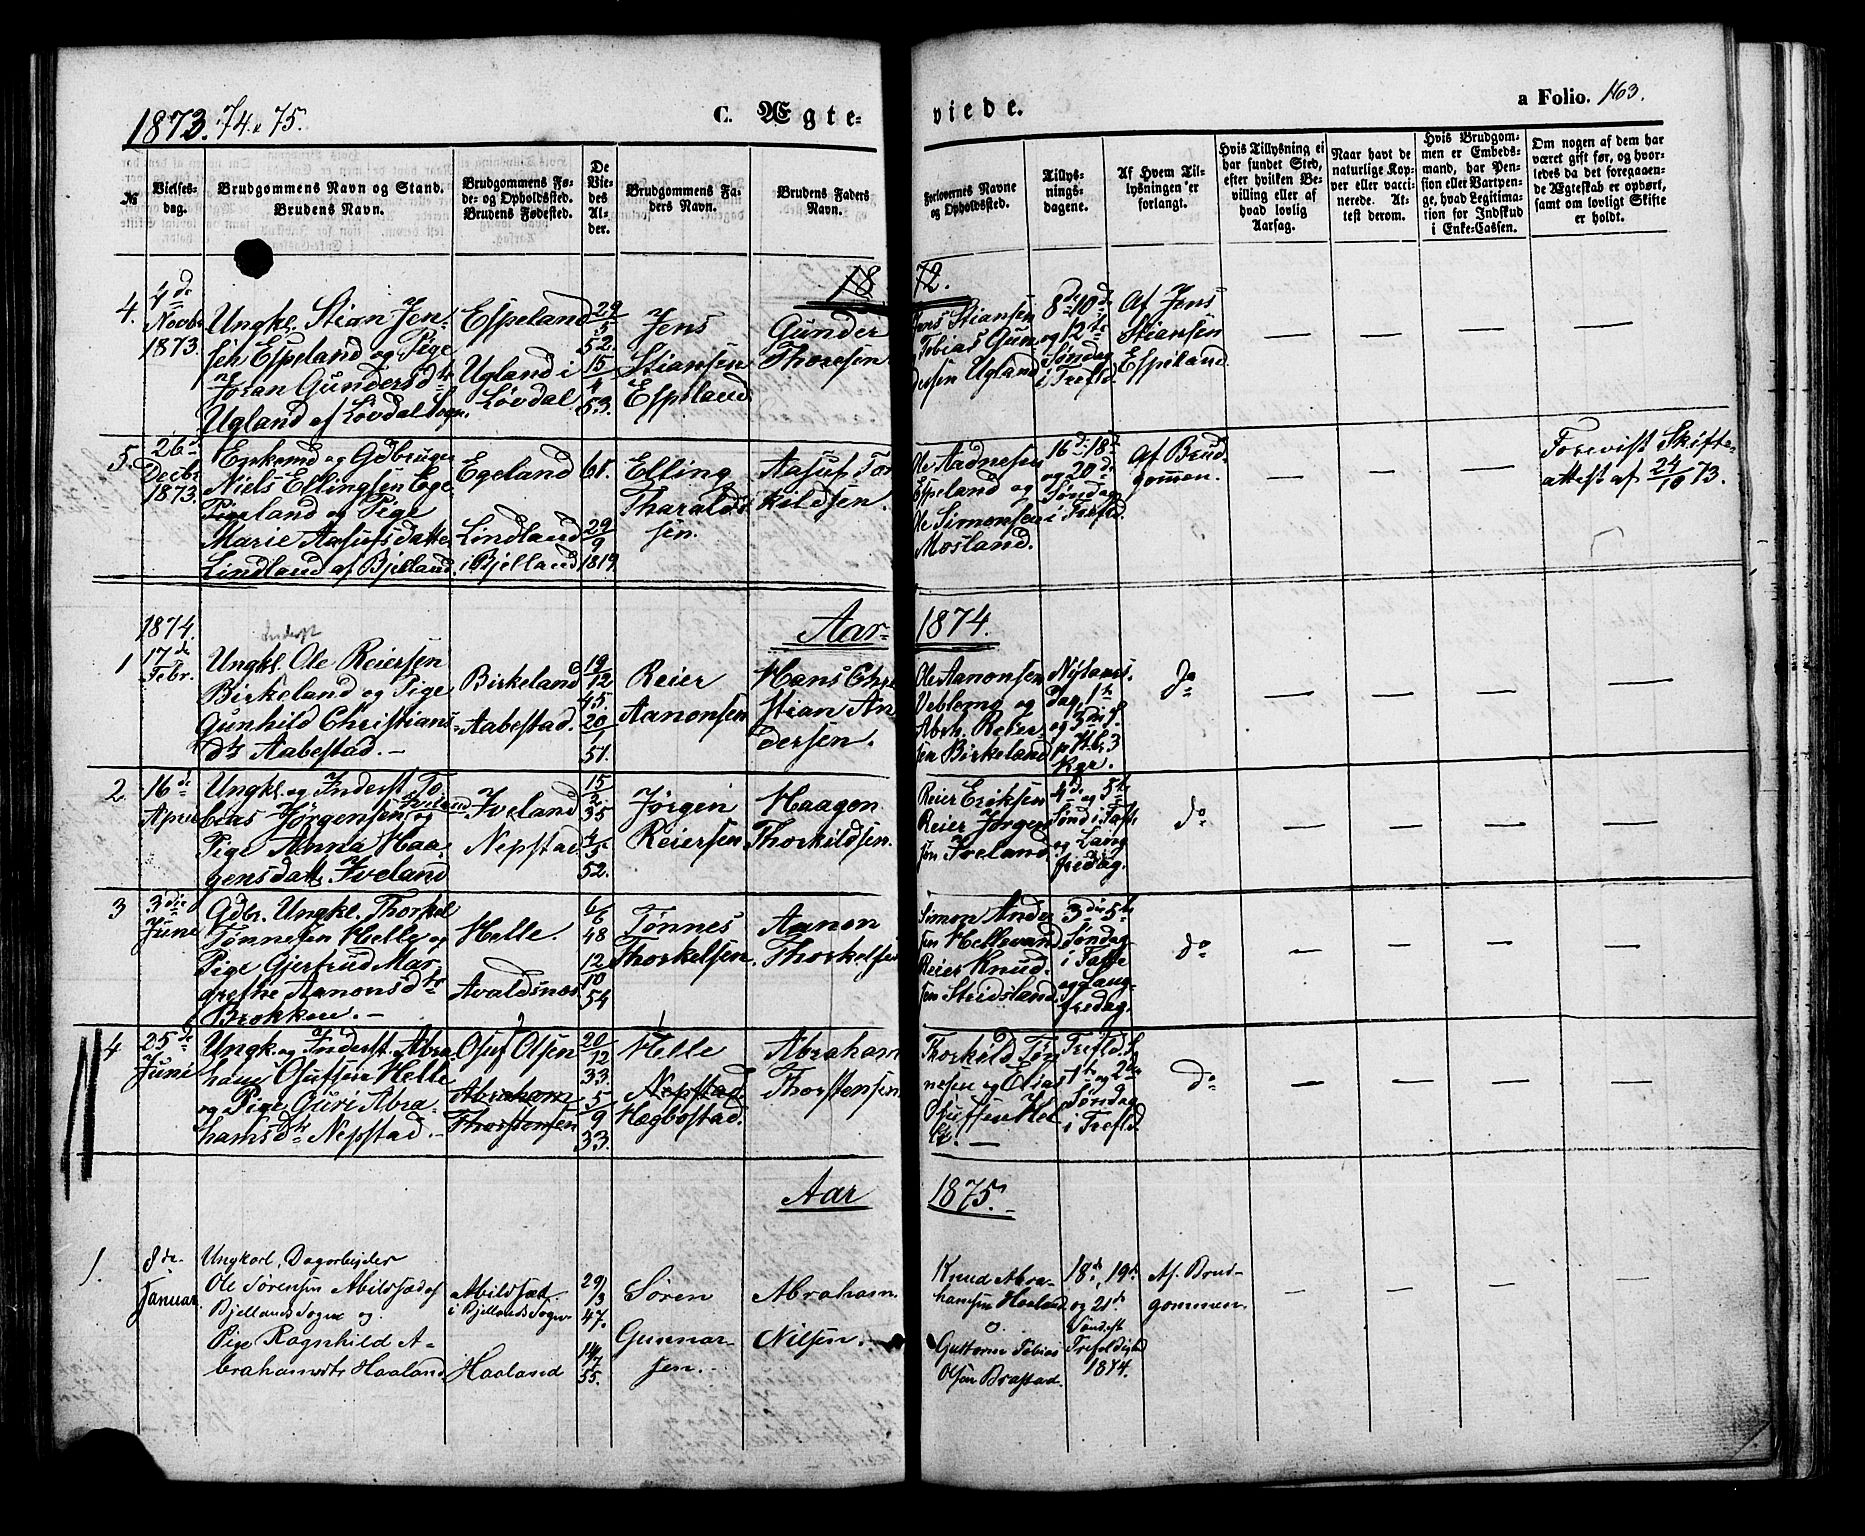 1873. 74 & 75.
C. Ægte-
viede.
a Folio. 163.
№
Vielses-
dag.
Brudgommens Navn og Stand.
Brudens Navn.
Brudgommens Fø-
de- og Opholdssted.
Brudens Fødested.
De
Vie-
des
Al-
der.
Brudgommens Fa-
ders Navn.
Brudens Faders
Navn.
Forlovernes Navne
og Opholdssted.
Tillys-
nings-
dagene.
Af Hvem Til-
lysningen er
forlangt.
Hvis Tillysning ei
har fundet Sted,
efter hvilken Be-
villing eller af
hvad lovlig
Aarsag.
Naar havt de
naturlige Kop-
per eller vacci-
nerede. At-
test derom.
Hvis Brudgom-
men er Embeds-
mand, har Pen-
sion eller Vartpen-
ge, hvad Legitima-
tion for Indskud
i Enke-Cassen.
Om nogen af dem har
været gift før, og hvor-
ledes da det foregaaen-
de Ægteskab er ophørt,
samt om lovligt Skifte
er holdt.
1872.
4.
4de
Novbr
1873.
Ungkl. Stian Jen-
sen Espeland og Pige
Joran Gundersdtr
Ugland af Løvdal Sogn.
Espeland
Ugland i
Løvdal
29
5
52.
15
4
53.
Jens
Stiansen
Espeland.
Gunder
Thoresen
Jens Stiansen
Tobias Gun-
dersen Ugland
8de 10de
og 12te
Søndag
i Trefld.
Af Jens
Stiansen
Espeland
5.
26de
Decbr
1873.
Enkemd og Gdbruger
Niels Ellingsen Ege-
land og Pige
Marie Aasufsdatter
Lindland af Bjelland.
Egeland
Lindland
i Bjelland
61.
29
9
1819.
Elling
Tharalds
sen.
Aasuf Tor
kildsen.
Ole Aadnesen
Espeland og
Ole Simonsen
Mosland.
16de 18de
og 20de
Søndag
i Trefld.
Af Brud-
gommen.
Forevist Skifte-
attest af 24/10 73.
Aar 1874.
1874.
1
17de
Febr.
Inderst
Ungkl. Ole Reiersen
Birkeland og Pige
Gunhild Christians-
dtr Aabestad.
Birkeland
Aabestad.
19
12
45.
20
1
51.
Reier
Aanonsen
Hans Chri
stian An
dersen.
Ole Aanonsen
Veblemo og
Abrh. Reier-
sen Birkeland
Nytaars-
dag, 1te
og 3die S.
p. H. t. 3
Kgr.
do
2.
16de
April
Ungkl. og Inderst To-
bias Jørgensen Iveland og
Pige Anna Haa-
gensdatter Iveland
Iveland
Nepstad
15
2
35
4
5
52.
Jørgen
Reiersen
Haagen
Thorkildsen.
Reier Eriksen
Reier Jørgen
sen Iveland
4de og 5te
Sønd i Faste
og Lang
fredag.
do
3
3die
June
Gdbr. Ungkl. Thorkel
Tønnesen Helle og
Pige Gjertrud Mar-
grethe Aanonsdtr
Brokken.
Helle.
Avaldsnæs
6
6
48
12
10
54
Tønnes
Thorkelsen.
Aanon
Thorkelsen
Simon Ander
sen Hellevand
Reier Knud-
sen Stridsland
3die 5te
Søndag
i Faste
og Lang-
fredag.
do
4
25de
Juni
Ungk. og Inderst. Abra-
ham Osufsen Helle
og Pige Guri Abra-
hamsdtr Nepstad.
Osuf Olsen
Abraham
Thorstensen
20
12
33.
5
9
33.
Helle
Nepstad
Hægbostad.
Abraham
Thorstensen
Thorkild Tøn
nesen og Elias
Osufsen Hel
le.
Trefld. S.
1te og 2den
Søndag
i Trefld
do
Aar 1875.
1.
8de
Januar.
Ungkarl, Dagarbejder
Ole Sørensen Abildsæd af
Bjellands Sogn og
Pige Ragnhild A-
brahamsdtr Haaland.
Abildsæt
i Bjellands Sogn
Haaland
29
3
47.
14
7
55.
Søren
Gunnar-
sen.
Abraham
Nilsen.
Knud Abra-
hamsen Haaland
o.
Guttorm Tobias
Olsen Brastad.
18de, 19de
og 21de
Søndag
Trefoldighed
1874.
Af Brud-
gommen.